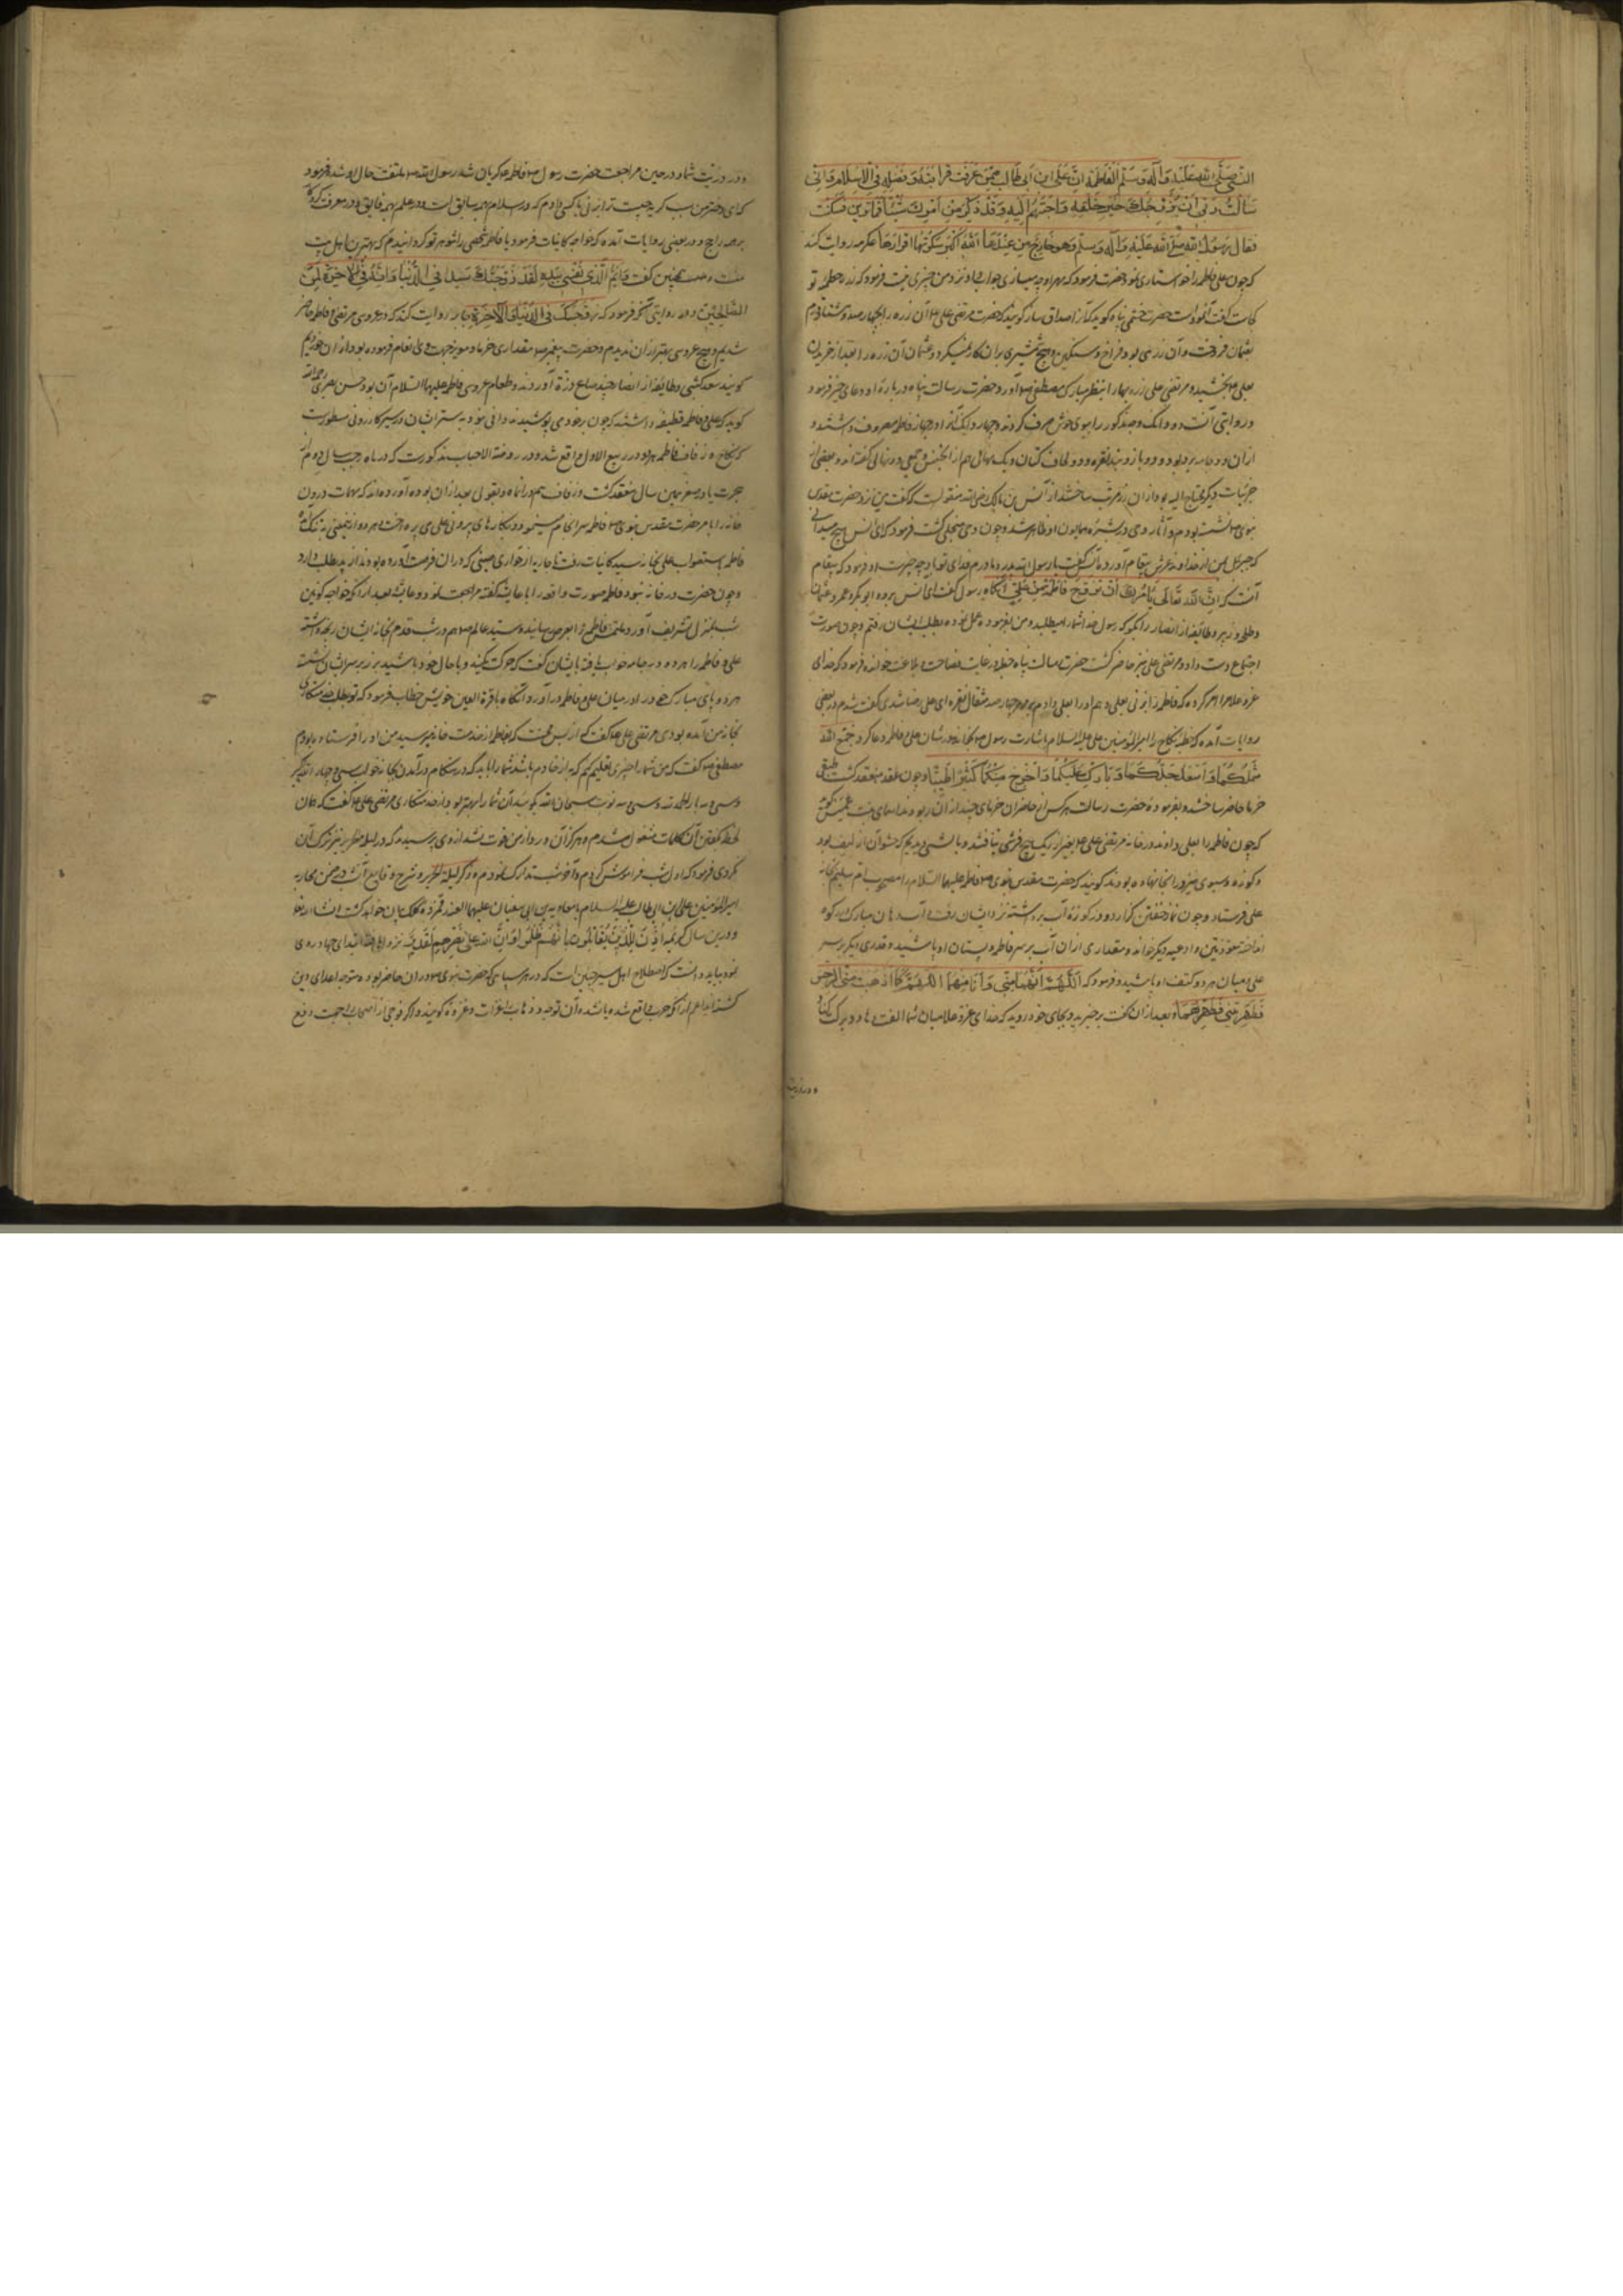 النبی صلی الله علیه وآله وسلم لفاطمة ان علی ابن ابی طالب ممن عرفت قرابته وفضله فی الاسلام وانی
سالت ربی ان یزوجک خیر خلقه واحبهم الیه وقد ذکر من امرک شیئا فما ترین فسکتت
فقال رسول الله صلی الله علیه وآله وسلم وهو خارج من عندها الله اکبر سکوتها اقرارها عکرمه روایت کند
که چون علی فاطمه را خواستاری نمود حضرت فرمود که مهر او چه میسازی جواب داد نزد من چیزی نیست فرمود که زره حطمه تو
کجاست گفت
بعثمان فروخت وآن زرهی بود فراخ وسنگین وهیچ شمشیری بران کار نمیکرد وعثمان آن زره را بعد از خریدن
بعلی بخشیده مرتضی علی زره وبها را بنظر مبارک مصطفی آورد وحضرت رسالت پناه در باره او دعای خیر فرمود
ودر روایتی آنست که دو دانگ وجه مذکور را ببوی خوش صرف کردند وچهار دانک را در جهاز فاطمه مصروف داشتند و
ازان دو جامه برد بود ودو بازوبند نقره ودو لحاف کتان ویک
جزئیات دیگر که محتاج الیه بود ازان زر مرتب ساختند از انس بن مالک رضی الله منقولست که گفت من نزد حضرت مقدس
نبوی نشسته بودم وآثار وحی در بشره همایون او ظاهر شد وچون وحی منجلی گشت فرمود که ای انس هیچ میدانی
که جبرئیل امین از خداوند عرش پیغام آورد مرا گفت یا رسول الله پدر ومادرم فدای تو باد چه چیزست او فرمود که پیغام
آنست که ان الله تعالی یامرک ان تزوج فاطمة من علی آنگاه رسول گفت ای انس برو وابوبکر وعمر وعثمان
وطلحه وزبیر وطائفه از انصار را بگو که رسول خدا شما را میطلبد ومن بفرموده عمل نموده بطلب ایشان رفتم وچون صورت
اجتماع دست داد ومرتضی علی نیز حاضر گشت حضرت رسالت پناه خطبه در غایت فصاحت وبلاغت خوانده فرمود که خدای
عز وعلا مرا امر کرده که فاطمه را بزنی بعلی دهم او را بعلی دادم بر مهر چهار صد مثقال نقره ای علی رضا شدی گفت شدم ودر بعضی
روایات آمده که خطبه نکاح را امیرالمؤمنین علی علیه السلام باشارت رسول بخواند ودر شان علی وفاطمه دعا کرد جمع الله
شملکما واسعد جدکما وبارک علیکما واخرج منکما کثیرا طیبا وچون عقد منعقد گشت طبقی
خرما حاضر ساختند وبفرموده حضرت رسالت هر کس از حاضران خرمای چند ازان ربودند اسمای بنت عمیس گوید
که چون فاطمه را بعلی دادند در خانه مرتضی علی بغیر از ریک هیچ فرشی نیافتند وبالشی دیدیم که حشو آن از لیف بود
وکوزه وسبوی نیز در آنجا نهاده بودند گویند که حضرت مقدس نبوی فاطمه علیها السلام را مصحوب ام سلیم بخانه
علی فرستاد وچون نماز خفتن گزارد ودر کوزه آب برداشته نزد ایشان رفت وآب دهان مبارک در کوزه
انداخته معوذتین وادعیه دیگر خوانده ومقداری ازان آب بر سر فاطمه وپستان او پاشید وقدری دیگر بر سر
علی ومیان هر دو کتف او پاشید وفرمود که اللهم انهما منی وانا منهما اللهم کما اذهبت عنی الرجس
وطهرتنی فطهرهما وبعد ازان گفت برخیزید وبجای خود روید که خدای عز وعلا میان شما الفت دهاد وبرکت کناد
ودر ذریت
ودر ذریت شما ودر حین مراجعت حضرت رسول فاطمه گریان شد رسول الله ملتفت حال او شد فرمود
که ای دختر من سبب گریه چیست ترا بزنی بکسی دادم که در اسلام بر همه سابق است ودر علم بر همه فایق ودر معرفت کردگار
بر همه راجح ودر بعضی روایات آمده که خواجه کائنات فرمود یا فاطمه شخصی را شوهر تو گردانیدم که بهترین اهل بیت
منست وهمچنین گفت وایم الذی نفسی بیده لقد زوجتک سیدا فی الدنیا وانه فی الاخرة لمن
الصالحین ودر روایتی آنکه فرمود که زوجک فی الدنیا والاخرة جابر روایت کند که در عروسی مرتضی وفاطمه حاضر
شدیم وهیچ عروسی بهتر ازان ندیدم وحضرت پیغمبر مقداری خرما ومویز جهت ولی انعام فرموده بود ازان خوردیم
گویند سعد کبشی وطائفه از انصار چند صاع ذرة آوردند وطعام عروسی فاطمه علیها السلام آن بود حسن بصری رحمه الله
گوید که علی وفاطمه قطیفه داشتند که چون بر خود می پوشیدند
که نکاح وزفاف فاطمه زهرا در ربیع الاول واقع شد ودر روضة الاحباب مذکورست که در ماه رجب سال دوم از
هجرت یا در صفر همین سال منعقد گشت وزفاف هم در انماه وبقولی بعد ازان بوده آورده اند که مهمات درون
خانه را بامر حضرت مقدس نبوی فاطمه سرانجام مینمود وبکارهای بیرونی علی می پرداخت
فاطمه باستصواب علی بخانه سید کائنات رفت تا جاریه از جواری
وچون حضرت در خانه نبود فاطمه صورت واقعه را با عایشه گفته مراجعت نمود وعایشه بعد از آنکه خواجه کونین
بمنزل تشریف آورد ملتمس فاطمه را بعرض رسانید وسید عالم هم در شب قدم بخانه ایشان رنجه داشته
علی وفاطمه را هر دو در جامه خواب یافته بایشان گفت که حرکت مکنید وبحال خود باشید
هر دو پای مبارک خود را در میان علی وفاطمه در آورد وآنگاه با قرة العین خویش خطاب فرمود که تو بطلب خدمتکاری
بخانه من آمده بودی مرتضی علی گفت
مصطفی گفت که من شما را چیزی تعلیم کنم که به از خادم باشد شما را باید که در هنگام درآمدن بجامه خواب سی وچهار بار الله اکبر
وسی وسه بار الحمد لله وسی وسه نوبت سبحان الله گویید که آن شما را بهتر بود از خدمتکاری مرتضی علی گفت که همان
لحظه بگفتن آن کلمات مشغول شدم وهرگز آن ورد از من فوت نشد از وی پرسیدند که در لیلة الهریر نیز ترک آن
نکردی فرمود که اول شب فراموش کردم وآخر شب تدارک نمودم وذکر لیلة الهریر وشرح وقایع آنشب در ضمن محاربه
امیرالمؤمنین علی ابن ابی طالب علیه السلام با معاویه بن ابی سفیان
ودرین سال کریمه اذن للذین یقاتلون بانهم ظلموا وان الله علی نصرهم لقدیر نزول یافت ابتدای جهاد روی
نمود باید دانست که اصطلاح اهل سیر چنین است که در هر سپاهی که حضرت نبوی در ان حاضر بوده متوجه اعدای دین
گشته اند اعم از آنکه حرب واقع شده باشد آن توجه وذهاب را غزات وغزوه گویند واگر فوجی از اصحاب را جهت دفع